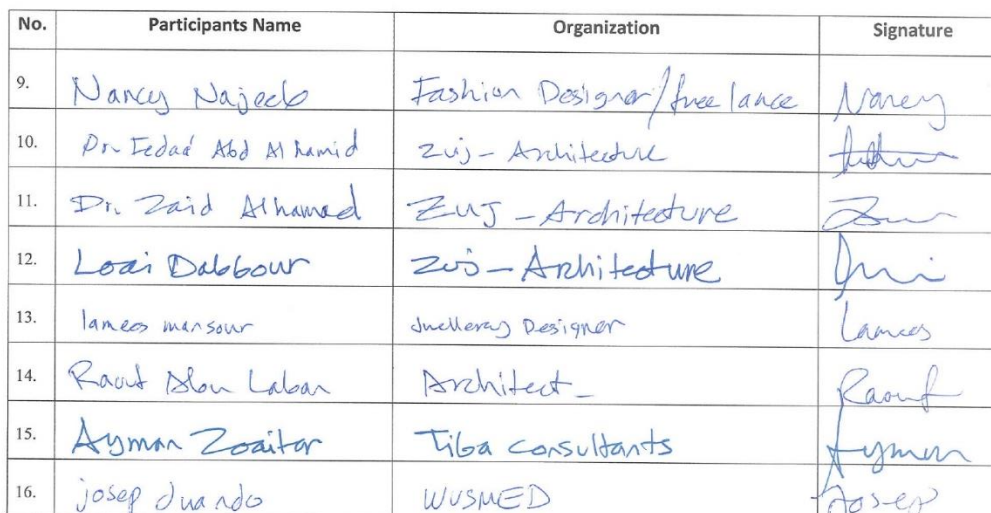 No. Participants Name Organization Signature
9. Nancy Najeeb Fashion Designer/free lance Nancy
10. Dr. Fedaa Abd Al hamid zuj - Architecture
11. Dr. Zaid Alhamad ZUJ - Architecture
12. Loai Dabbour zuj - Architecture
13. lamees mansour Designer Lamees
14. Raouf Abou Laban Architect Raouf
15. Ayman Tiba consultants Aymen
16. josep duando WUSMED Josep